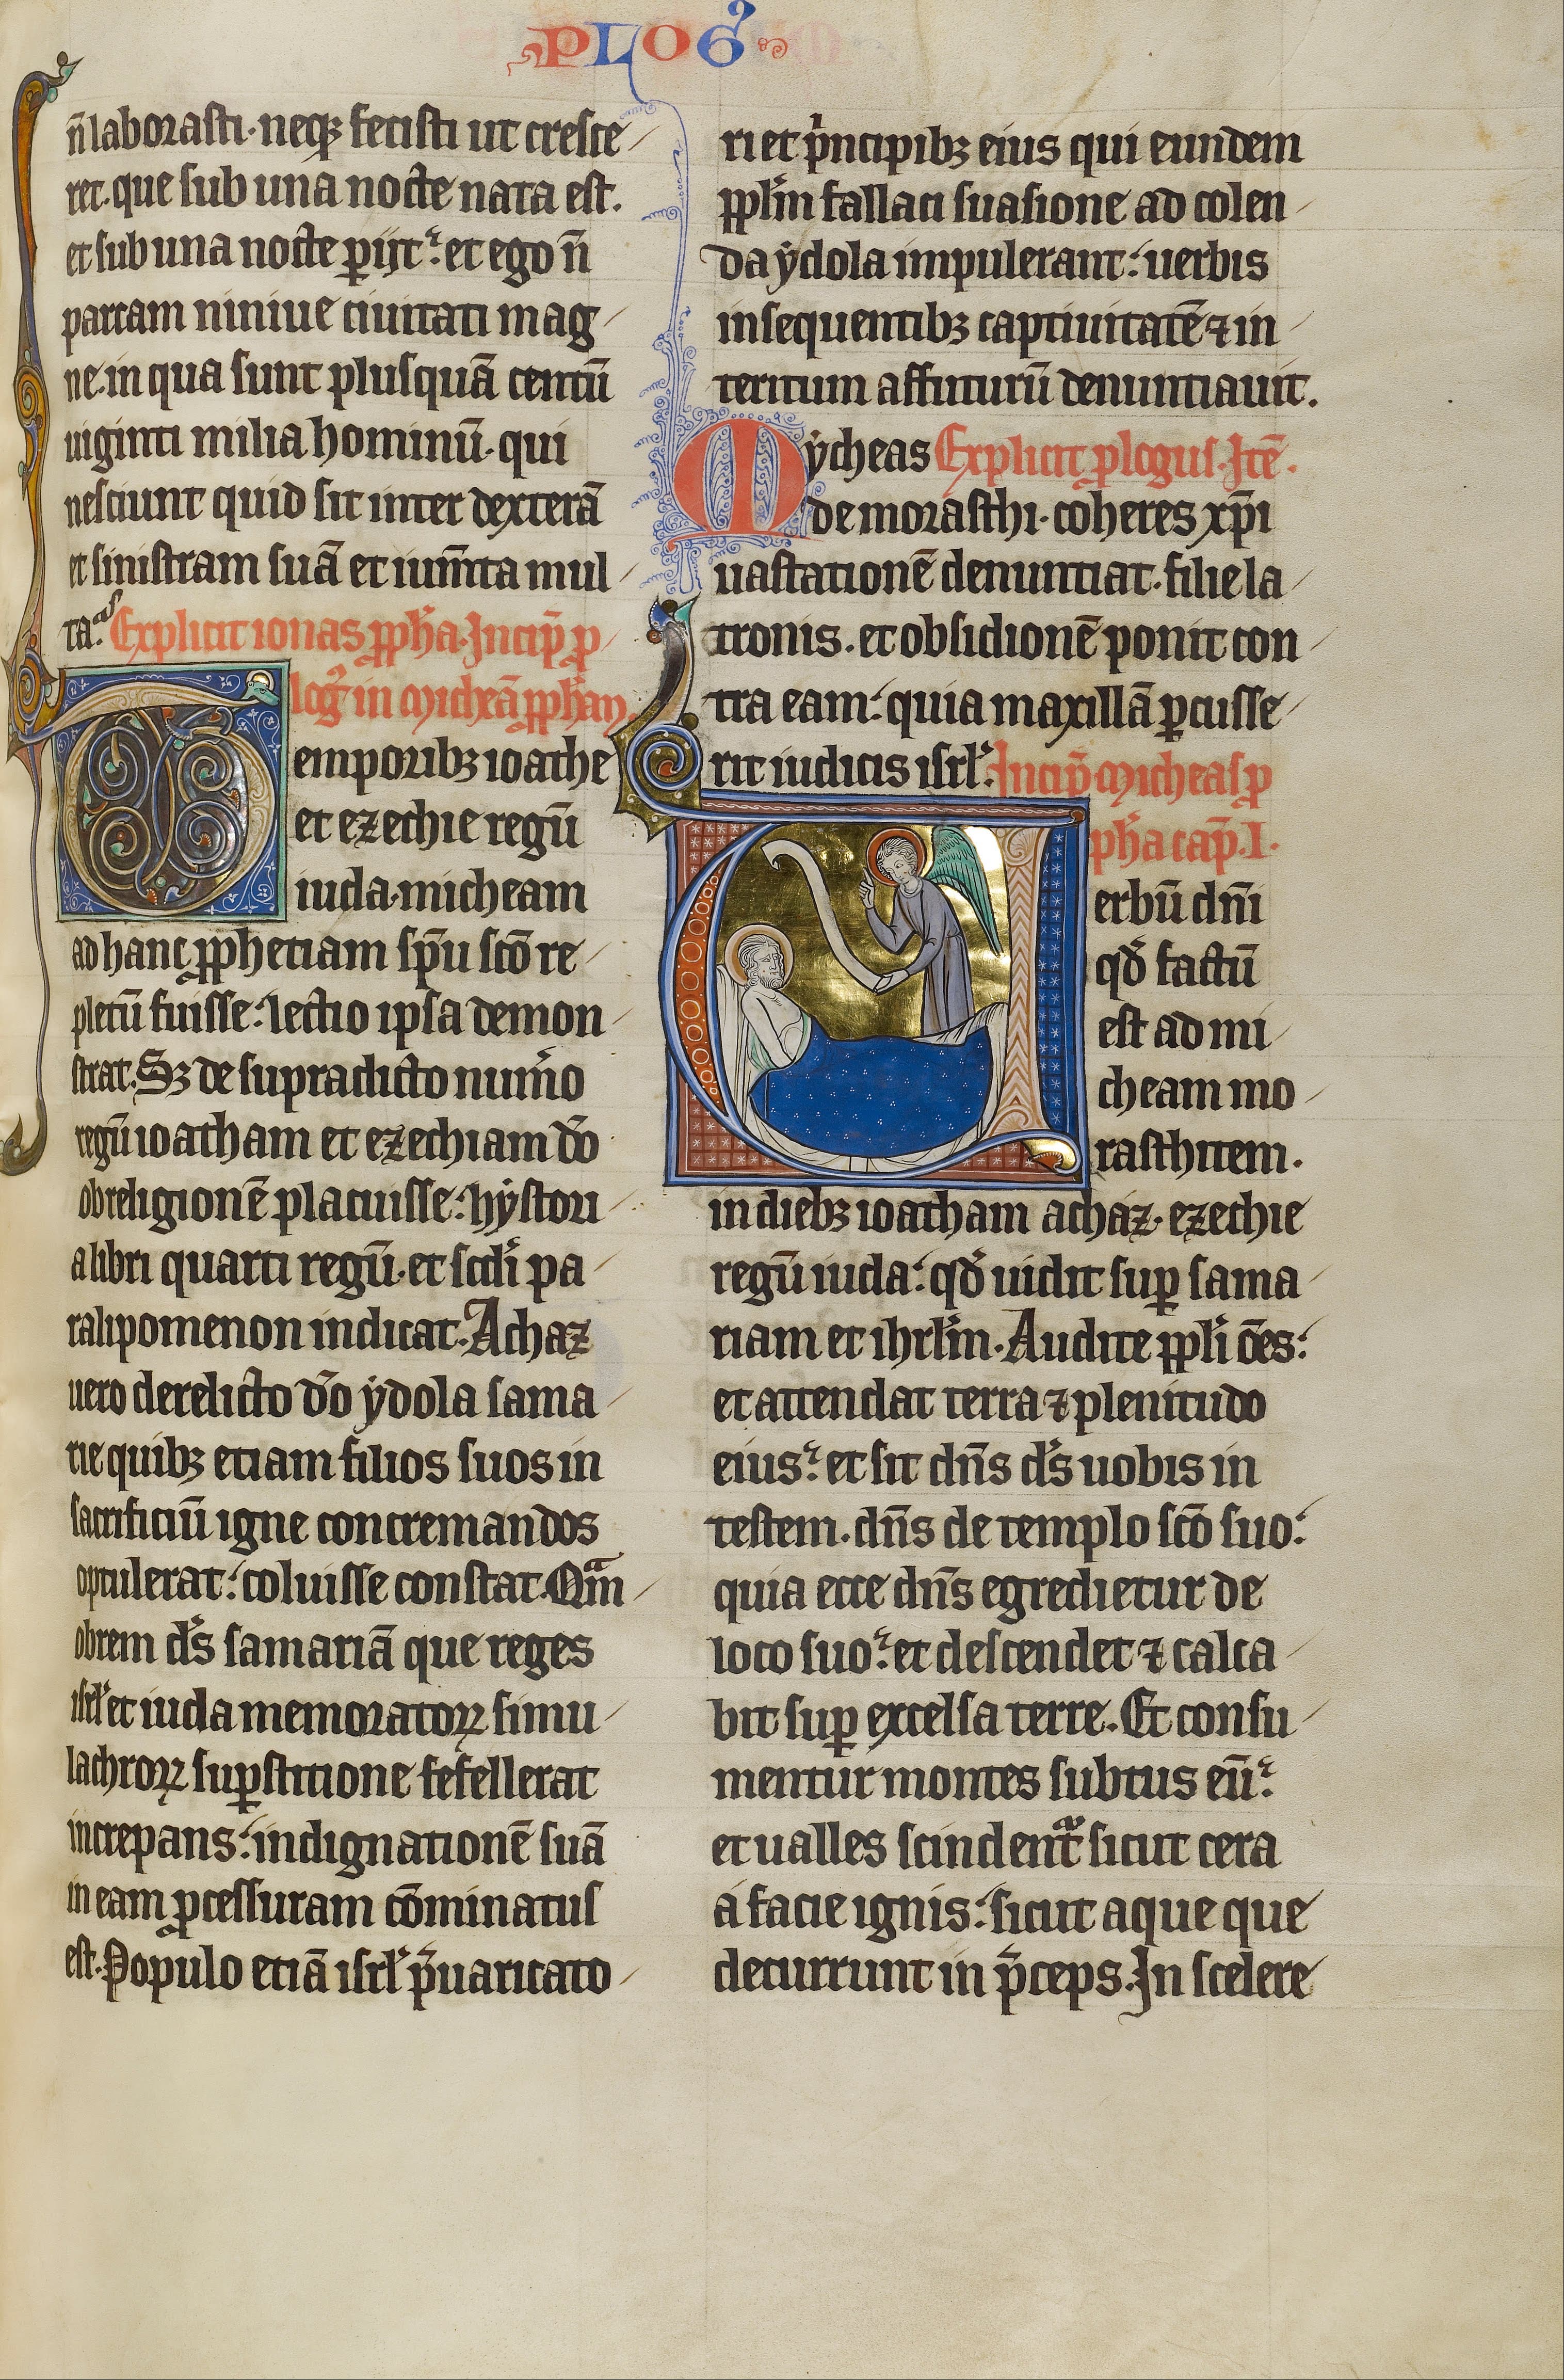 PLOG⁹
n̄ laborasti. neqꝫ fecisti ut cresce
ret. que sub una nocte nata est.
et sub una nocte ꝑijt: et ego n̄
parcam niniue ciuitati mag
ne. in qua sunt plusquā centū
uiginti milia hominū. qui
nesciunt quid sit inter dexterā
et sinistram suā et ium̄ta mul
ta. Explicit ionas ꝓph̄a. Incip̄ ꝓ
log⁹ in Micheā ꝓph̄am.
Temporibꝫ ioathe
et ezechie regū
iuda. micheam
ad hanc ꝓphetiam sp̄u scō re
pletū fuisse: lectio ipsa demon
strat. Sꝫ de supradicto num̄o
regū ioatham et ezechiam dō
ob religionē placuisse: hẏstori
a libri quarti regū. et scdi̓ pa
ralipomenon indicat. Achaz
uero derelicto dō ẏdola sama
rie quibꝫ etiam filios suos in
sacrificiū igne concremandos
optulerat: coluisse constat. Qᵃm
obrem ds̓ samariā que reges
isrl̓ et iuda memoratoꝝ simu
lachroꝝ suꝑstitione fefellerat
increpans: indignationē suā
in eam ꝓcessuram cōminatus
est. Populo etiā isrl̓ p̄uaricato
ri et pⁱncipibꝫ eius qui eundem
pplm̓ fallaci suasione ad colen
da ẏdola impulerant: uerbis
insequentibꝫ captiuitatē ⁊ in
teritum affuturū denuntiauit.
Mẏcheas Explicit ꝓlogus. Itē.
de morasthi. coheres xp̄i
uastationē denuntiat. filie la
tronis. et obsidionē ponit con
tra eam: quia maxillā ꝑcusse
rit iudicis isrl̓. Incip̄ Micheas ꝓ
ph̄a cap̄. I.
Verbū dn̄i
qd̓ factū
est ad mi
cheam mo
rasthitem.
in diebꝫ ioatham achaz. ezechie
regū iuda: qd̓ uidit suꝑ sama
riam et ihrlm̓. Audite ppli̓ ōes:
et attendat terra ⁊ plenitudo
eius: et sit dn̄s ds̓ uobis in
testem. dn̄s de templo scō suo:
quia ecce dn̄s egredietur de
loco suo: et descendet ⁊ calca
bit suꝑ excelsa terre. Et consu
mentur montes subtus eū:
et ualles scindentᵃ sicut cera
a facie ignis: sicut aque que
decurrunt in p̄ceps. In scelere